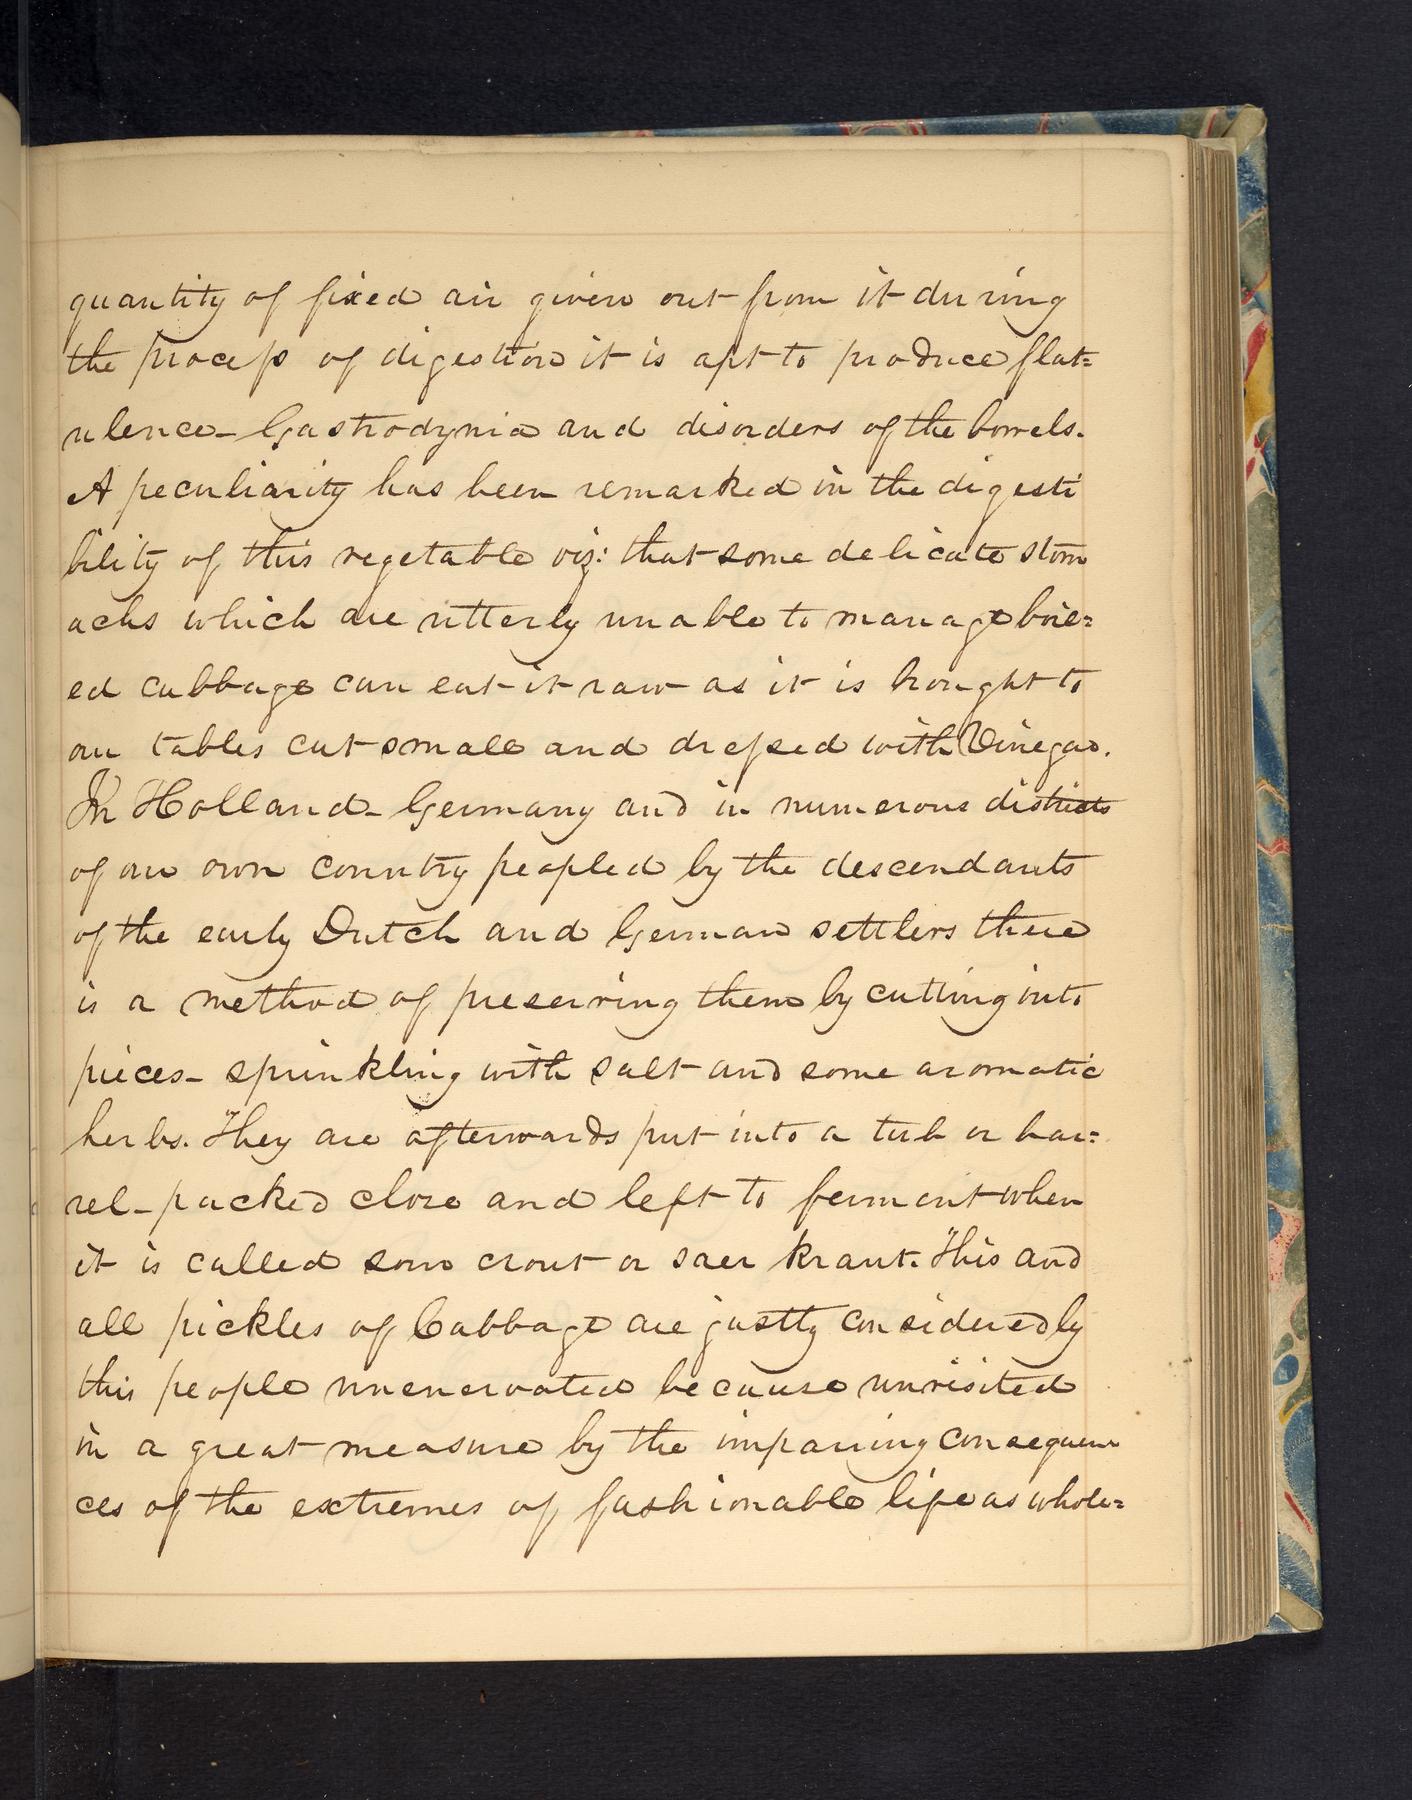 quantity of fixed air given out from it during
the process of digestion it is apt to produce flat=
ulence_ Gastrodynia and disorders of the bowels.
A peculiarity has been remarked in the digesti
bility of this vegetable viz: that some delicate stom
achs which are utterly unable to manage boil=
ed cabbage can eat it raw as it is brought to
our tables cut small and dressed with Vinegar.
In Holland_ Germany and in numerous districts
of our own country peopled by the descendants
of the early Dutch and German settlers there
is a method of preserving them by cutting into
pieces_ sprinkling with salt and some aromatic
herbs. They are afterwards put into a tub or bar=
rel_ packed close and left to ferment when
it is called sour crout or saer kraut. This and
all pickles of Cabbage are justly considered by
this people unenervated because unvisited
in a great measure by the impairing consequen
ces of the extremes of fashionable life as whole=